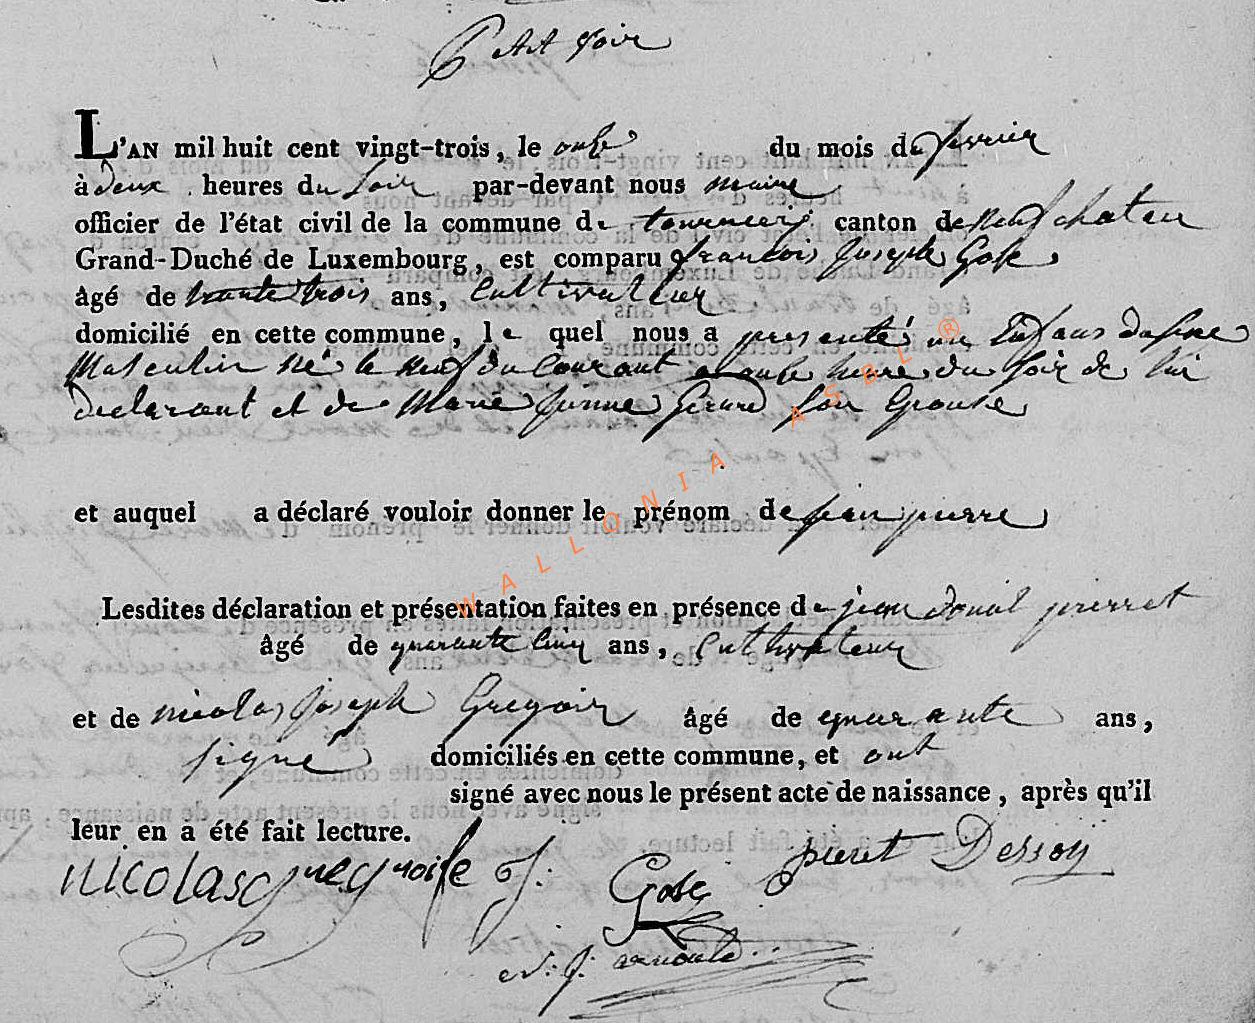 Petit voir
L'AN mil huit cent vingt-trois, le onze du mois de fevrier
à deux heures du soir par-devant nous maire
officier de l'état civil de la commune de tournay canton de neufchateau
Grand-Duché de Luxembourg, est comparu francois Joseph Gose
âgé de trente trois ans, Cultivateur
domicilié en cette commune, le quel nous a presenté un Enfant de sexe
Masculin né le neuf du Courant a onze heure du soir de lui
declarant et de Marie jenne Gerard son Epouse
et auquel a déclaré vouloir donner le prénom de jean pierre
Lesdites déclaration et présentation faites en présence de jean pierret
âgé de quarante Cinq ans, Cultivateur
et de nicolas joseph Gregoir âgé de quarante ans,
signé domiciliés en cette commune, et ont
signé avec nous le présent acte de naissance, après qu'il
leur en a été fait lecture.
nicolas gregoire J: Gose pieret Dessoy
N: J: arnould
WALLONIA ASBL ®